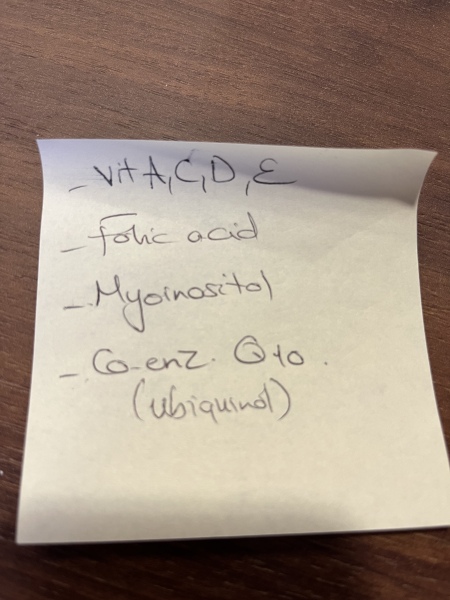 - Vit A, C, D, E
- Folic acid
- Myoinositol
- Co-enz. Q10.
(Ubiquinol)